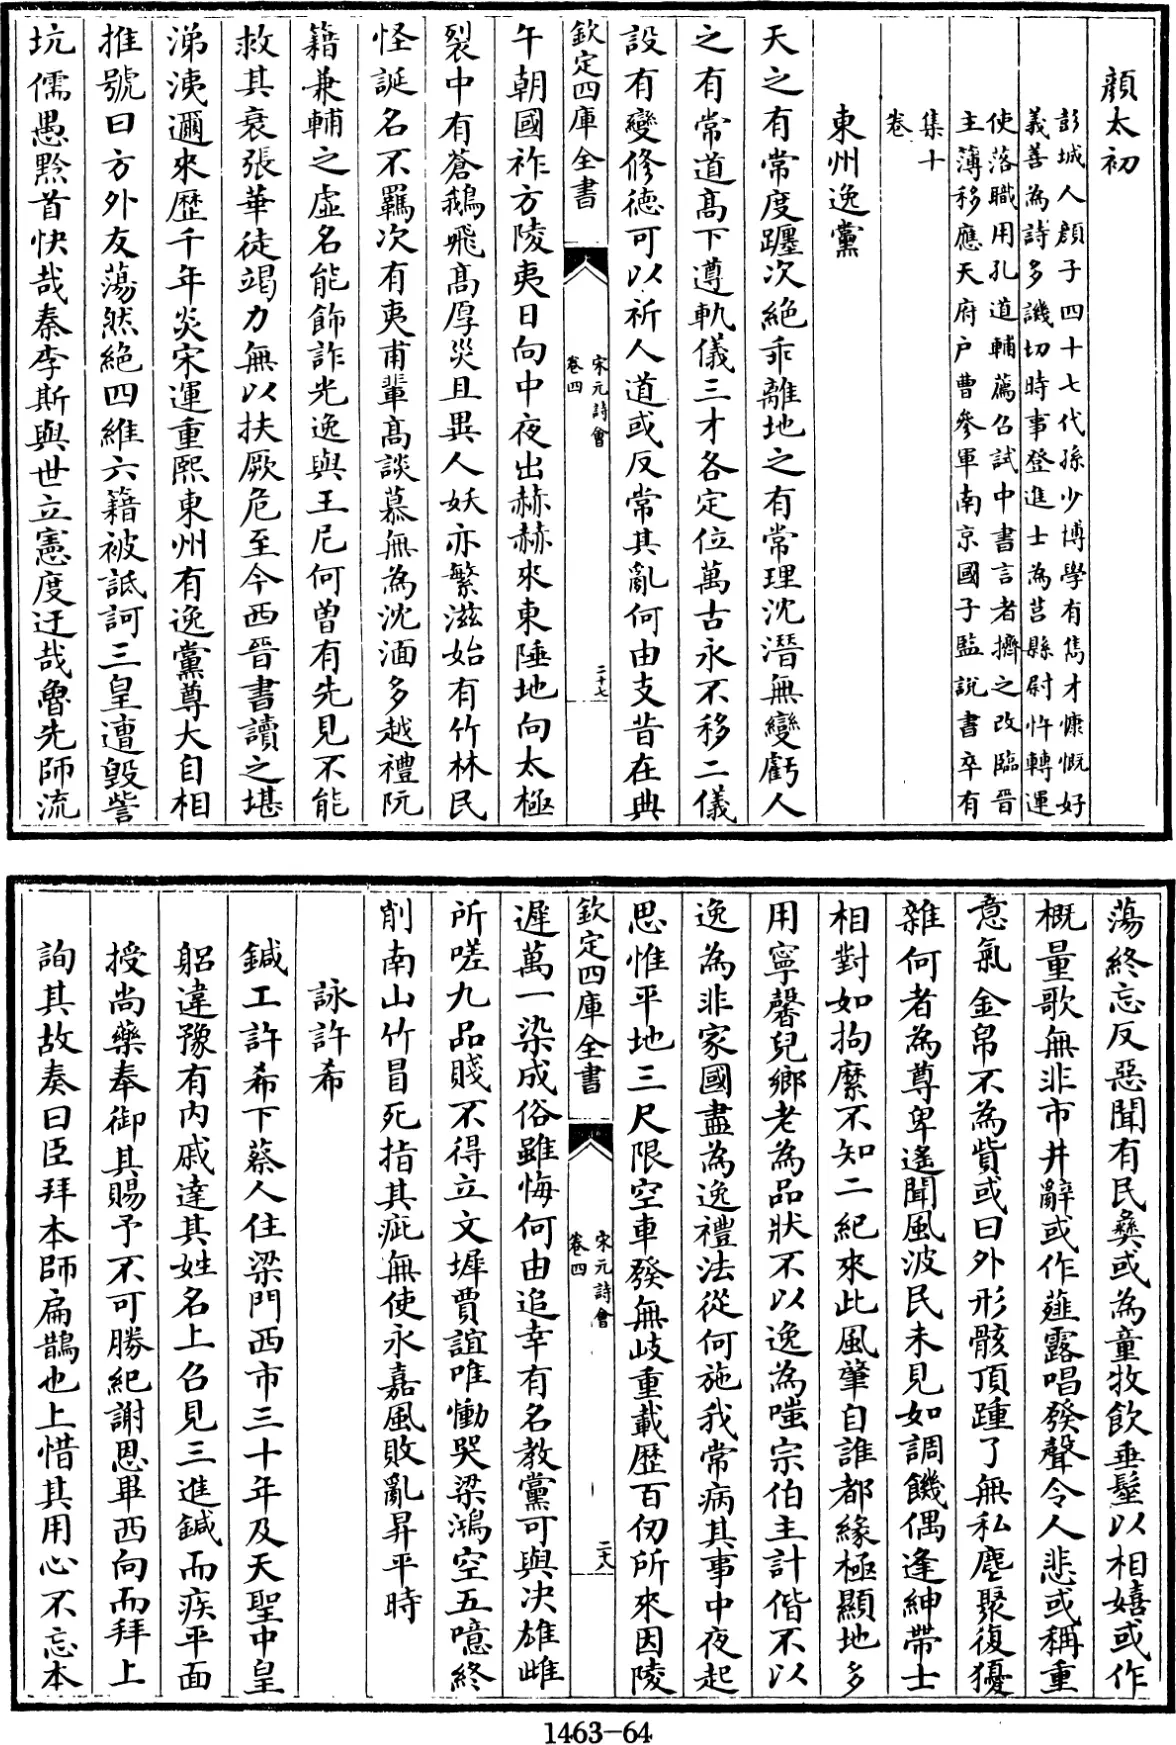 顔太初
彭城人顔子四十七代孫少博學有雋才慷慨好
義善為詩多譏切時事登進士為莒縣尉忤轉運
使落職用孔道輔薦召試中書言者擠之改臨晉
主簿移應天府户曹參軍南京國子監説書卒有
集十
卷
東州逸黨
天之有常度躔次絶乖離地之有常理沈潛無變虧人
之有常道髙下遵軌儀三才各定位萬古永不移二儀
設有變修德可以祈人道或反常其亂何由支昔在典
欽定四庫全書
宋元詩會
卷四
二十七
午朝國祚方陵夷日向中夜出赫赫來東陲地向太極
裂中有蒼鵝飛髙厚災且異人妖亦繁滋始有竹林民
怪誕名不羈次有夷甫輩髙談慕無為沈湎多越禮阮
籍兼輔之虛名能飾詐光逸與王尼何曽有先見不能
救其衰張華徒竭力無以扶厥危至今西晉書讀之堪
涕洟邇來歷千年炎宋運重熙東州有逸黨尊大自相
推號曰方外友蕩然絶四維六籍被詆訶三皇遭毀訾
坑儒愚黔首快哉秦李斯與世立憲度迂哉魯先師流
蕩終忘反惡聞有民彞或為童牧飲垂髫以相嬉或作
概量歌無非市井辭或作薤露唱發聲令人悲或稱重
意氣金帛不為貲或曰外形骸頂踵了無私麀聚復獶
雜何者為尊卑遙聞風波民未見如調饑偶逢紳帶士
相對如拘縻不知二紀來此風肇自誰都緣極顯地多
用寧馨兒鄉老為品狀不以逸為嗤宗伯主計偕不以
逸為非家國盡為逸禮法從何施我常病其事中夜起
思惟平地三尺限空車發無岐重載歴百仞所來因陵
欽定四庫全書
宋元詩會
卷四
二十八
遲萬一染成俗雖悔何由追幸有名教黨可與决雄雌
所嗟九品賤不得立文墀賈誼唯慟哭梁鴻空五噫終
削南山竹冒死指其疵無使永嘉風敗亂昇平時
詠許希
鍼工許希下蔡人住梁門西市三十年及天聖中皇
躬違豫有内戚達其姓名上召見三進鍼而疾平面
授尚藥奉御其賜予不可勝紀謝恩畢西向而拜上
詢其故奏曰臣拜本師扁鵲也上惜其用心不忘本
1463-64